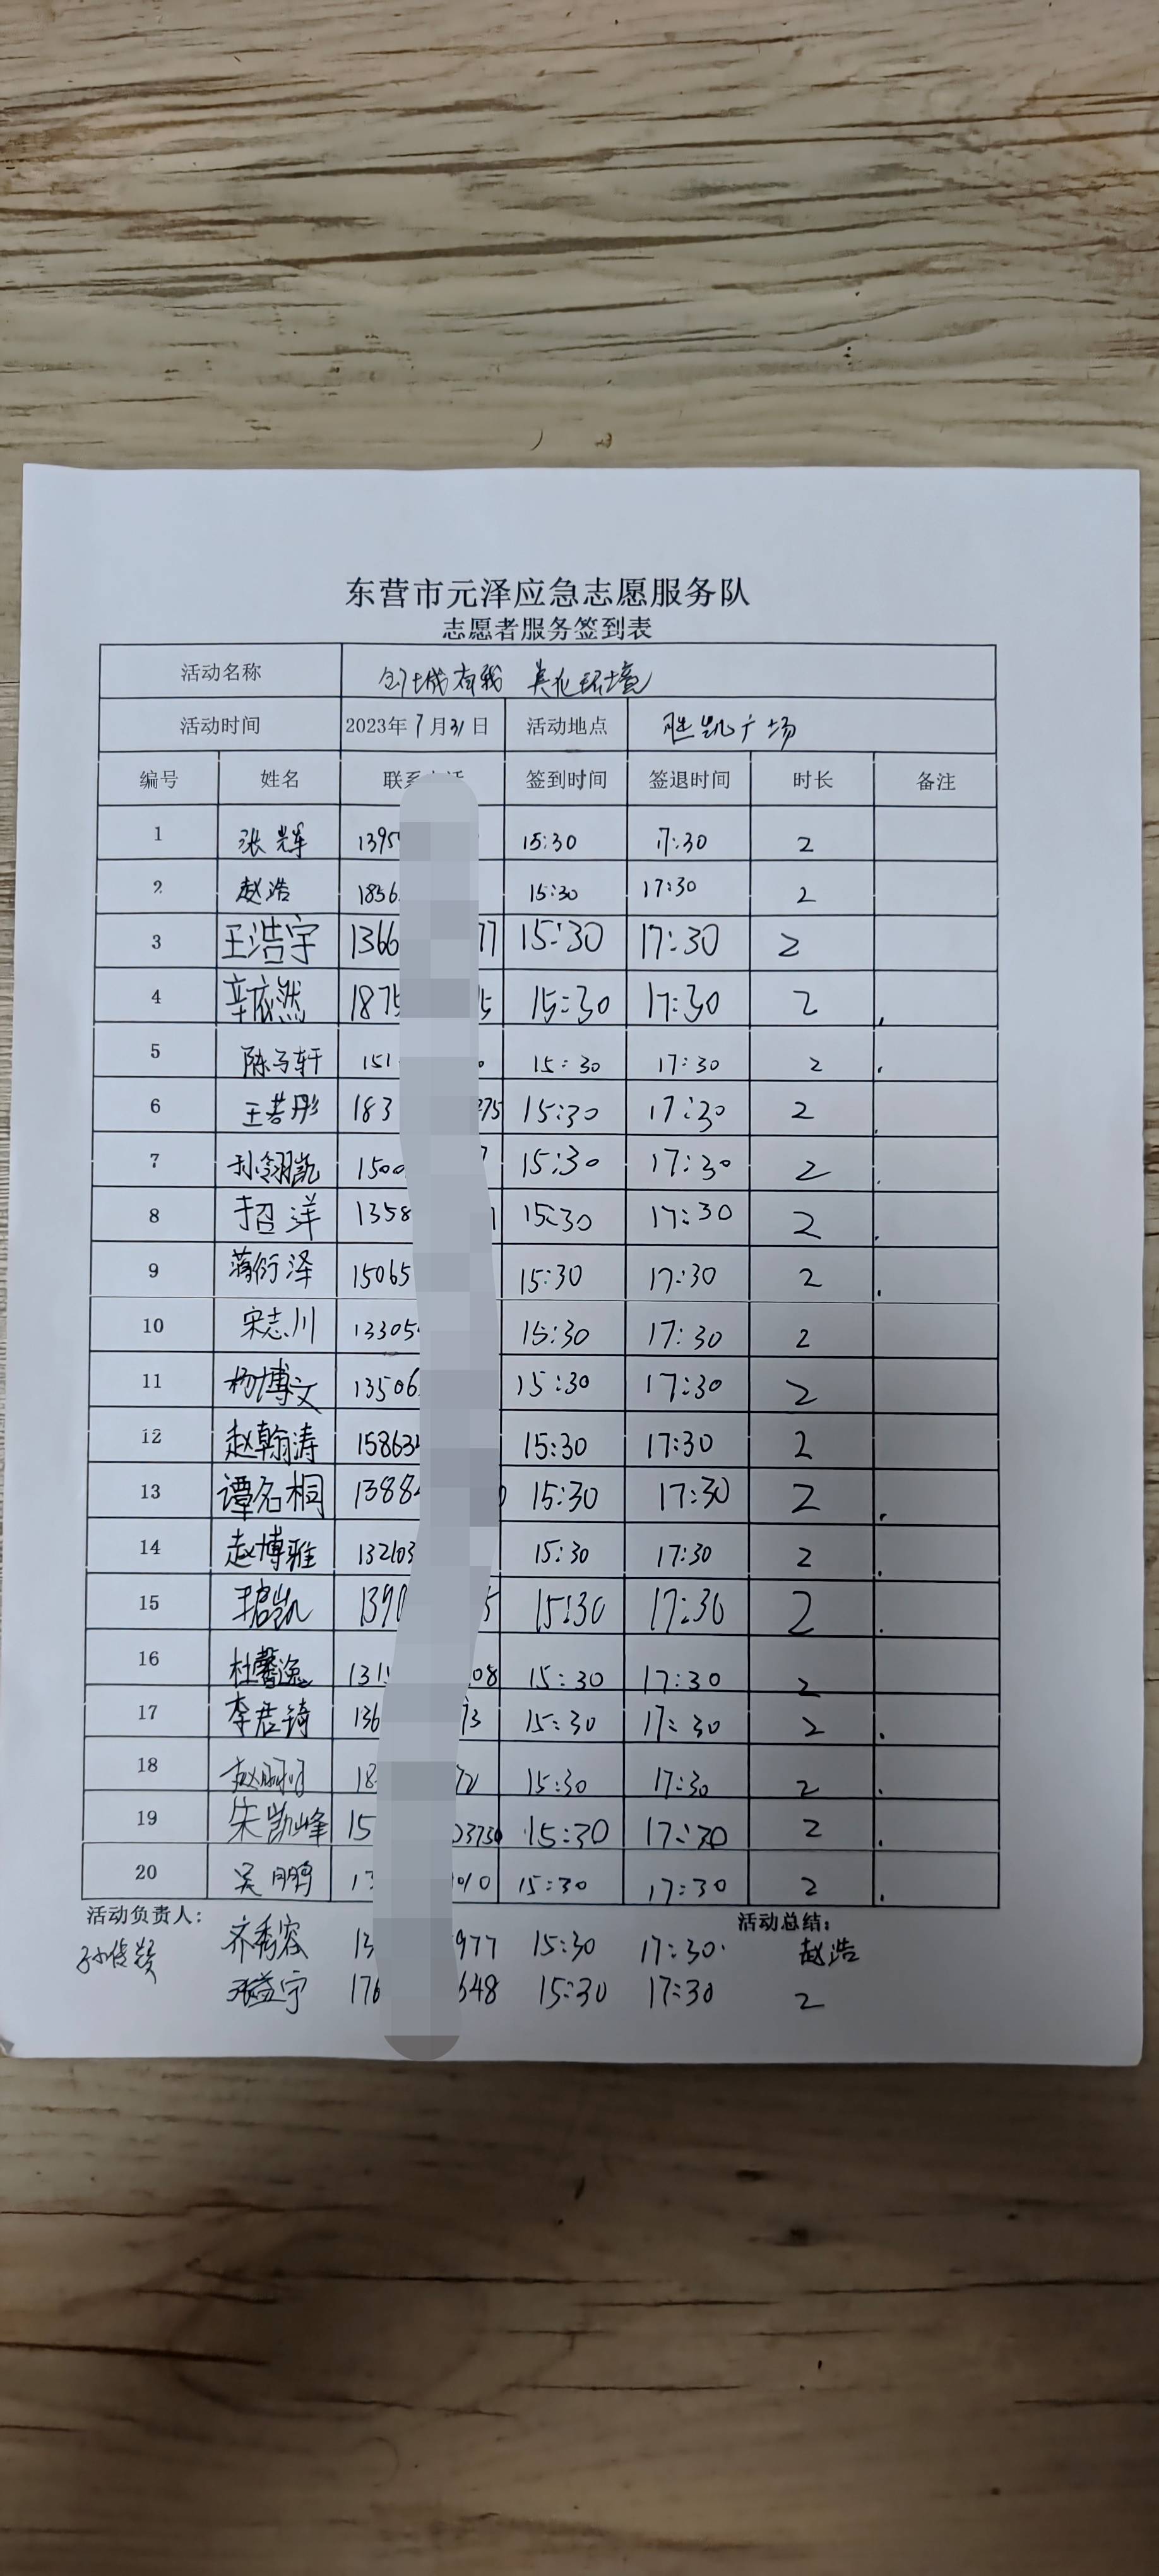 东营市元泽应急志愿服务队
志愿者服务签到表
活动名称 创城有我 美化环境
活动时间 2023年7月31日 活动地点 胜凯广场
编号 姓名 联系 话 签到时间 签退时间 时长 备注
1 张辉 1395 15:30 17:30 2
2 赵浩 1856 15:30 17:30 2
3 王浩宇 1366 77 15:30 17:30 2
4 辛依然 1875 5 15:30 17:30 2
5 陈子轩 151 0 15:30 17:30 2
6 王若彤 183 275 15:30 17:30 2
7 孙翎凯 1500 7 15:30 17:30 2
8 洋 1358 1 15:30 17:30 2
9 蒋衍泽 15065 15:30 17:30 2
10 宋志川 13305 15:30 17:30 2
11 杨博文 13506 15:30 17:30 2
12 赵翰涛 15863 15:30 17:30 2
13 谭名桐 1388 0 15:30 17:30 2
14 赵博雅 132103 15:30 17:30 2
15 凯 1390 5 15:30 17:30 2
16 杜馨逸 131 08 15:30 17:30 2
17 李君锜 136 93 15:30 17:30 2
18 赵 18 72 15:30 17:30 2
19 朱凯峰 15 03730 15:30 17:30 2
20 吴鹏 13 010 15:30 17:30 2
活动负责人: 活动总结:
齐秀容 13 977 15:30 17:30 赵浩
张益宁 176 648 15:30 17:30 2